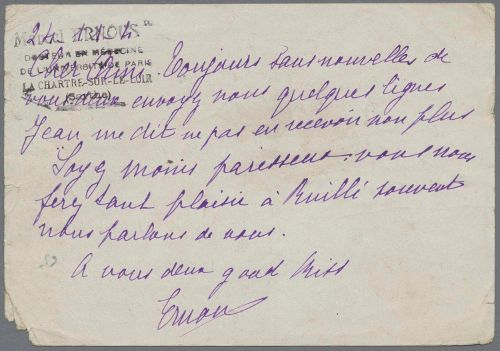 24
DOCTEUR EN MÉDECINE
DE L'UNIVERSITÉ DE PARIS
LA CHARTRE-SUR-LE-LOIR
(SARTHE)
Cher Toujours sans nouvelles de
vous deux envoyez nous quelques lignes
Jean me dit ne pas en recevoir non plus
Soyez moins paresseux. vous nous
ferez tant plaisir à Ruillé souvent
nous parlons de vous.
A vous deux good Kiss